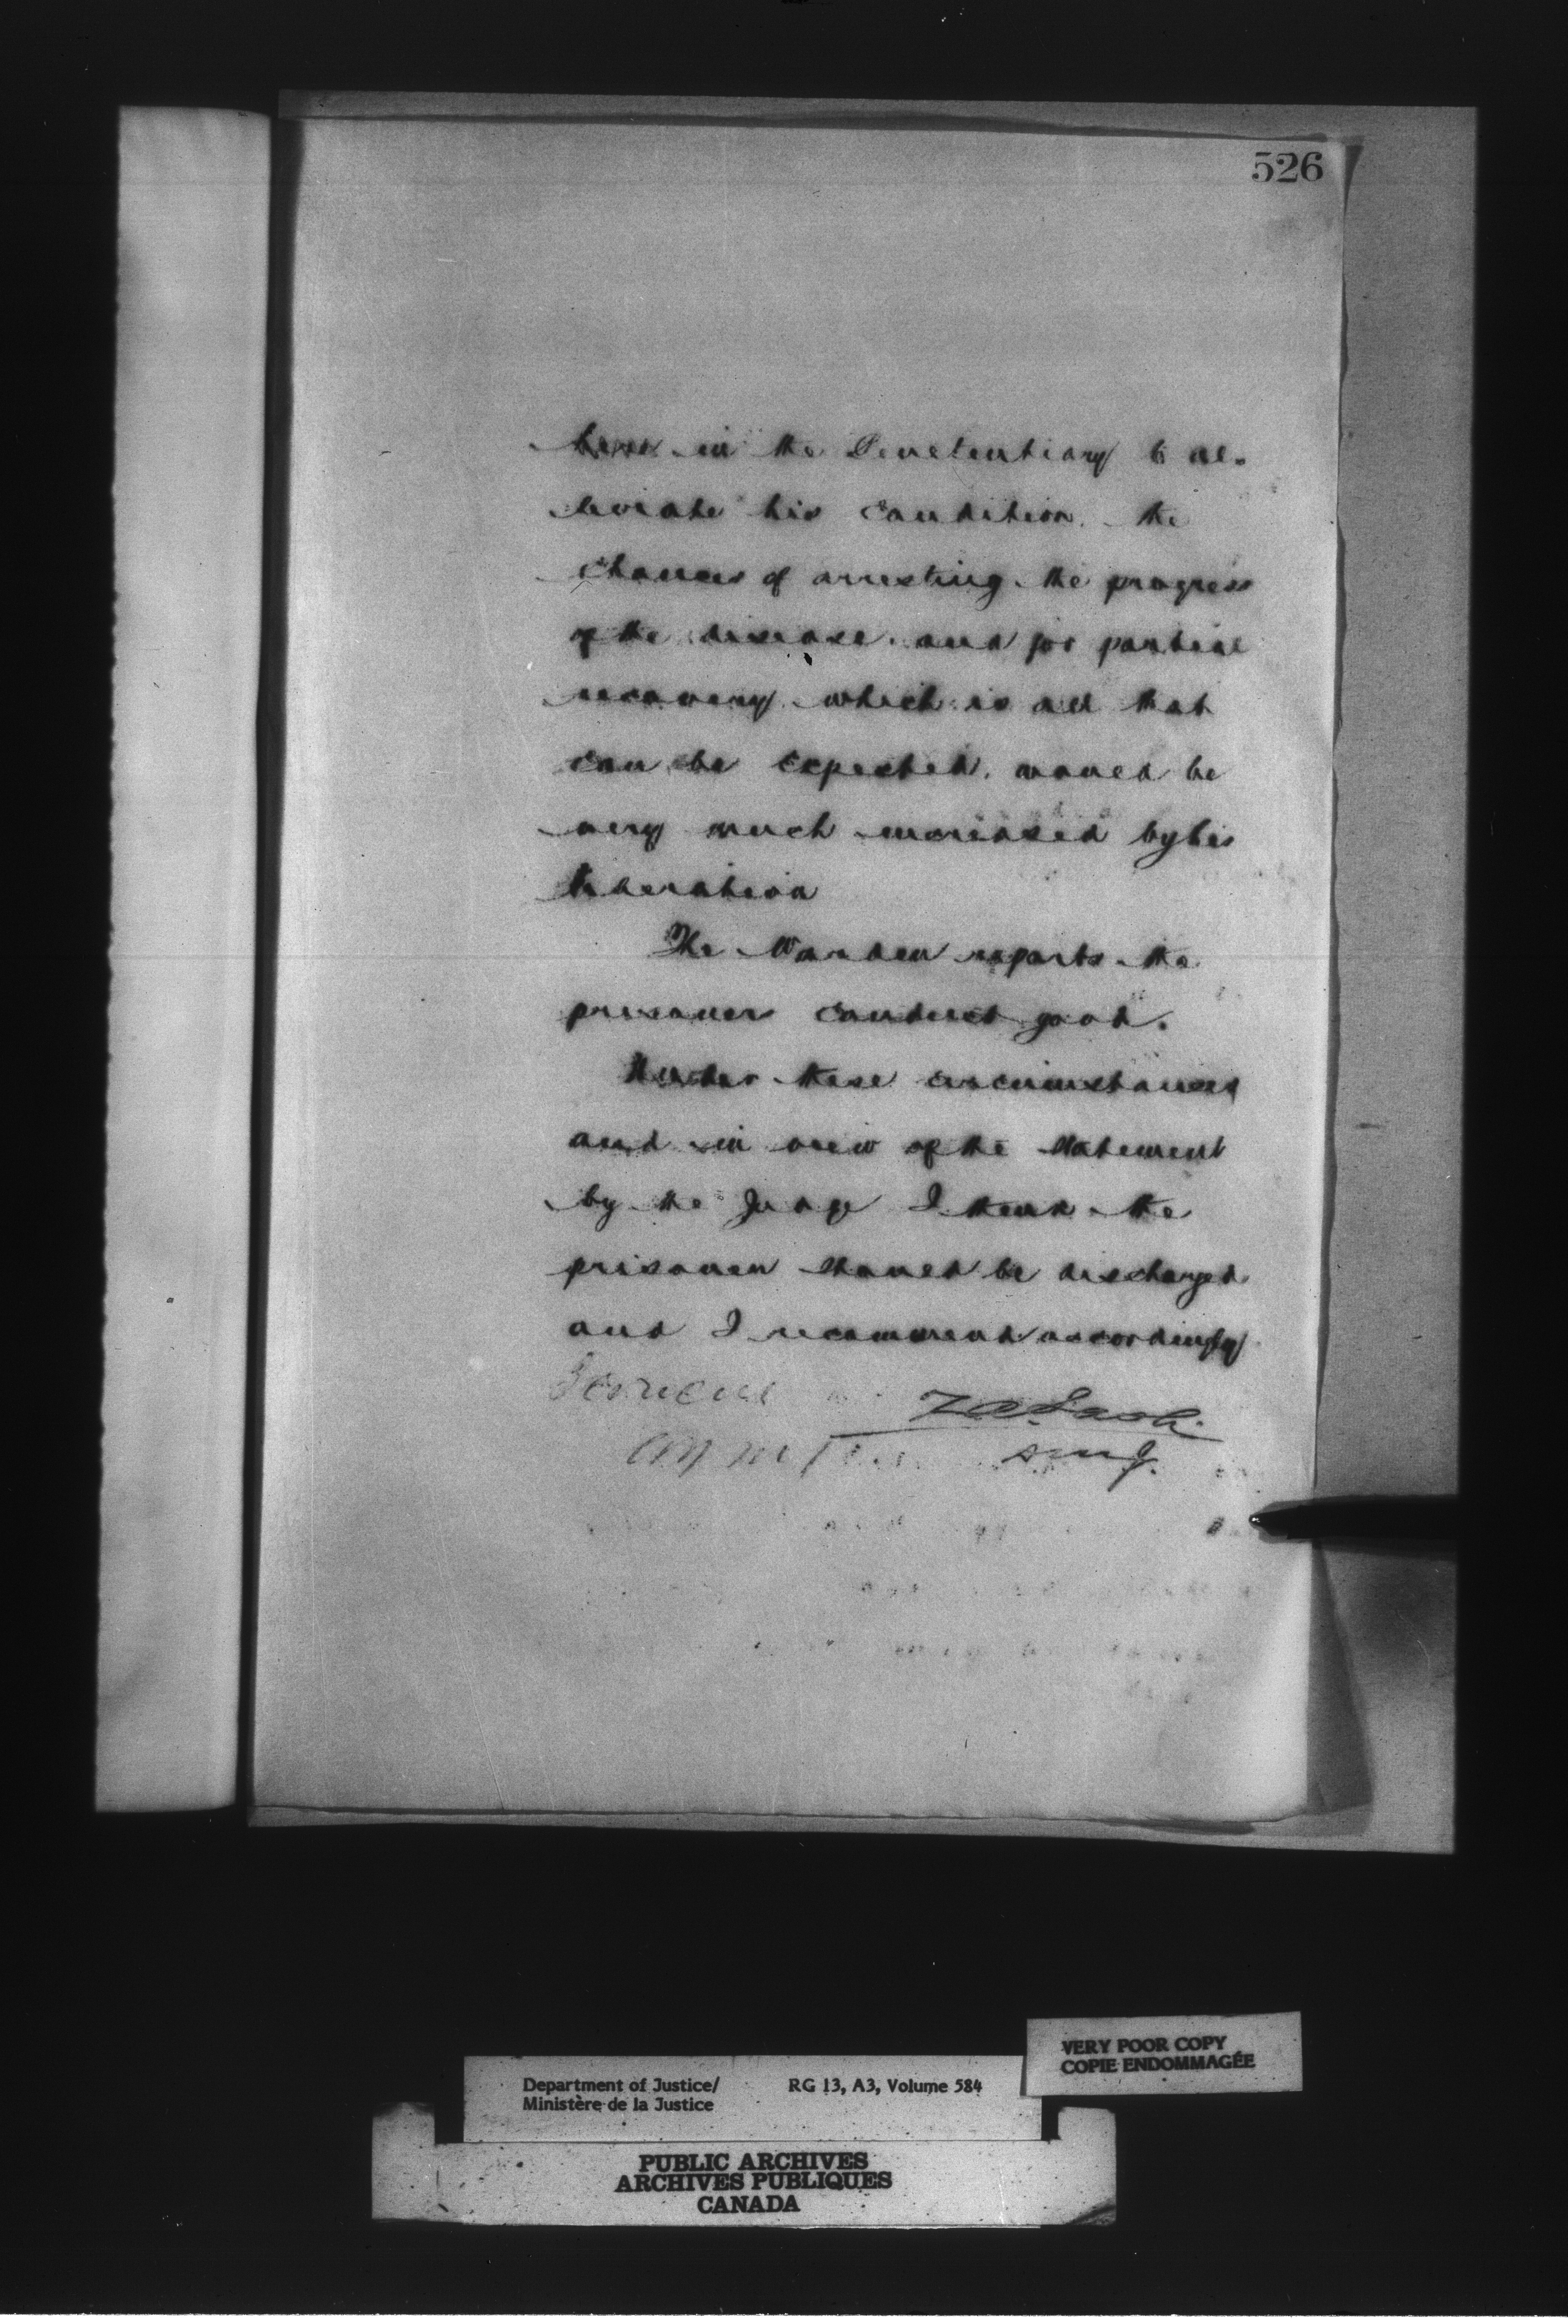 526
here in the Penetentiary to al-
leviate his condition. the
chances of arresting the progress
of the disease. and for partial
recovery which is all that
can be expected. would be
very much increased by his
liberation
The Warden reports the
prisoners conduct good.
Under these circumstances
and in view of the statement
by the Judge I think the
prisoner should be discharged
and I recommend accordingly
I concur
Z A Lash
DMJ.
VERY POOR COPY
COPIE ENDOMMAGÉE
Department of Justice/ RG 13, A3, Volume 584
Ministère de la Justice
PUBLIC ARCHIVES
ARCHIVES PUBLIQUES
CANADA